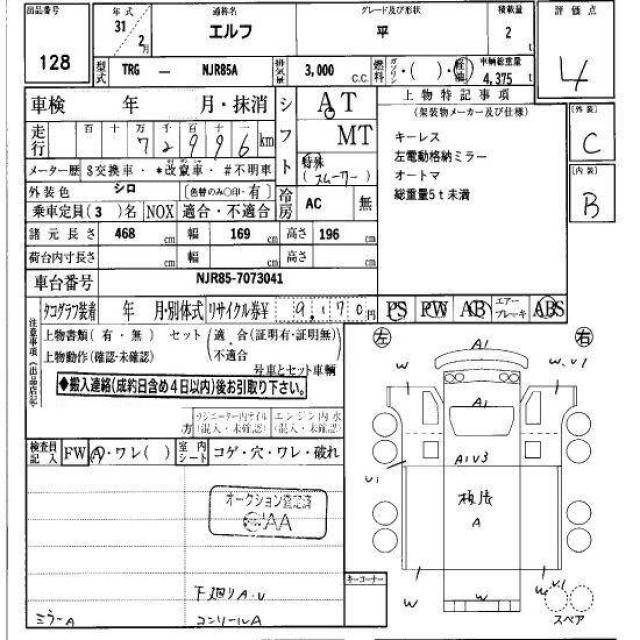 出品番号
128
年式
31年
2月
通称名
エルフ
グレード及び形状
平
積載量
2 t
評価点
4
型式
TRG － NJR85A
排気量
3,000 C.C.
燃料
ガソリン・( )・軽油
車輌総重量
4,375 t
車検 年 月・抹消
シフト
AT
MT
特殊
(スムーサー)
走行
百 十 万 千 百 十
7 2 9 9 6 km
メーター歴 $交換車・*改竄車・#不明車
外装色 シロ
(色替のみ〇印・有)
冷房
AC
無
乗車定員( 3 )名
NOX
適合・不適合
諸元長さ 468 cm 幅 169 cm 高さ 196 cm
荷台内寸長さ cm 幅 cm 高さ cm
車台番号
NJR85-7073041
上物特記事項
(架装物メーカー及び仕様)
キーレス
左電動格納ミラー
オートマ
総重量5t未満
[外装]
C
[内装]
B
タコグラフ装着 年 月・別体式
リサイクル券¥ 9,170 円
PS
PW
AB
エアーブレーキ
ABS
注意事項(出品店記)
上物書類(有・無) セット(適合(証明有・証明無)
・不適合
上物動作(確認・未確認)
号車とセット車輌
◆搬入連絡(成約日含め4日以内)後お引取り下さい。
ラジエーター内オイル
(混入・未確認)
エンジン内水
(混入・未確認)
検査員記入
FW
A・ワレ( )
室内シート
コゲ・穴・ワレ・破れ
オークション査定済
AA
下廻りA.U
ミラーA
コンソールA
キーコーナー
左
右
A1
W
W.V1
A1
A1V3
U1
板底
A
W
W
W.V1
スペア